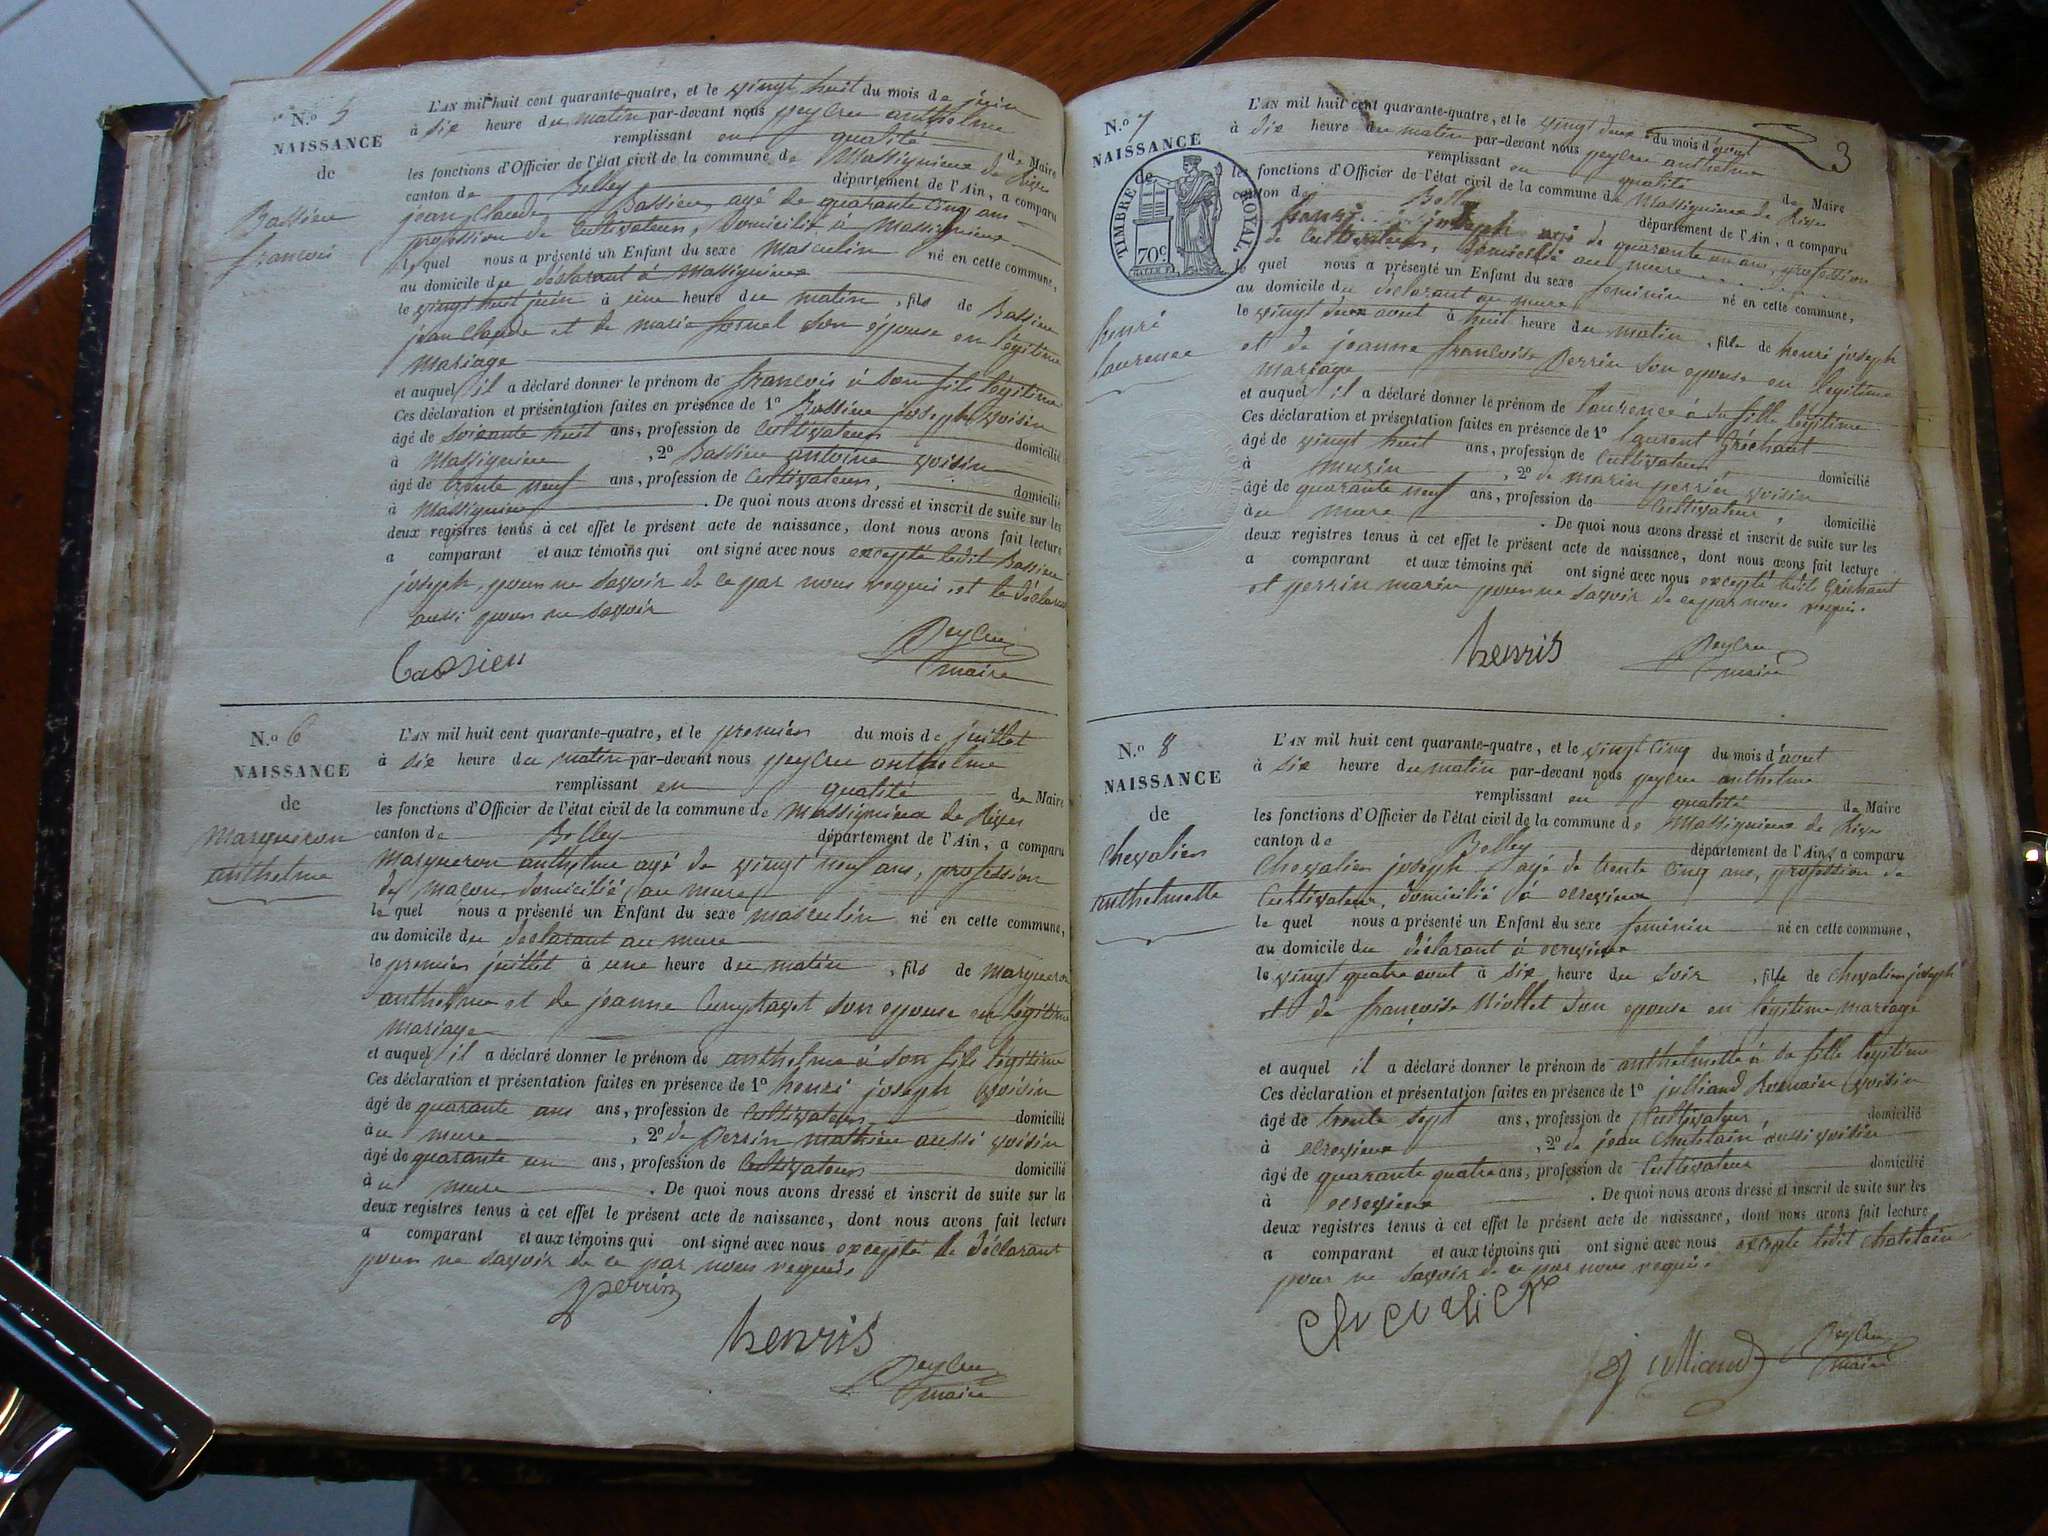 N.o 5
NAISSANCE
de
Bassieu
francois
L'AN mil huit cent quarante-quatre, et le vingt huit du mois de juin
à six heure du matin par-devant nous peyleu anthelme
remplissant en qualité de Maire
les fonctions d'Officier de l'état civil de la commune de Massignieux de Rives
canton de Belley département de l'Ain, a comparu
jean Claude Bassieu agé de quarante cinq ans
profession de Cultivateur, domicilié à Massignieux
le quel nous a présenté un Enfant du sexe masculin né en cette commune,
au domicile du déclarant à Massignieux
le vingt huit juin à une heure du matin, fils de Bassieu
jean Claude et de marie son épouse en légitime
mariage
et auquel il a déclaré donner le prénom de francois à son fils légitime
Ces déclaration et présentation faites en présence de 1o Bassieu joseph voisin
âgé de soixante huit ans, profession de Cultivateur domicilié
à Massignieux, 2o Bassieu antoine voisin
âgé de trente neuf ans, profession de Cultivateur, domicilié
à Massignieux. De quoi nous avons dressé et inscrit de suite sur les
deux registres tenus à cet effet le présent acte de naissance, dont nous avons fait lecture
a comparant et aux témoins qui ont signé avec nous excepté ledit Bassieu
joseph, pour ne savoir de ce par nous requi, et le déclarant
aussi pour ne savoir
bassieu
Peyleu
maire
N.o 6
NAISSANCE
de
Marqueron
anthelme
L'AN mil huit cent quarante-quatre, et le premier du mois de juillet
à six heure du matin par-devant nous peyleu anthelme
remplissant en qualité de Maire
les fonctions d'Officier de l'état civil de la commune de Massignieux de Rives
canton de Belley département de l'Ain, a comparu
Marqueron anthelme agé de vingt neuf ans, profession
de macon domicilié au mure
le quel nous a présenté un Enfant du sexe masculin né en cette commune,
au domicile du déclarant au mure
le premier juillet à une heure du matin, fils de Marqueron
anthelme et de jeanne son epouse en légitime
mariage
et auquel il a déclaré donner le prénom de anthelme à son fils légitime
Ces déclaration et présentation faites en présence de 1o henri joseph voisin
âgé de quarante ans ans, profession de Cultivateur domicilié
àu mure, 2o de Perrin mathieu aussi voisin
âgé de quarante un ans, profession de Cultivateur domicilié
àu mure. De quoi nous avons dressé et inscrit de suite sur les
deux registres tenus à cet effet le présent acte de naissance, dont nous avons fait lecture
a comparant et aux témoins qui ont signé avec nous excepté le déclarant
pour ne savoir de ce par nous requis.
perrin
henris
Peyleu
maire
3
N.o 7
NAISSANCE
de
TIMBRE ROYAL.
70c
henri
laurence
L'AN mil huit cent quarante-quatre, et le vingt deux du mois d'avout
à six heure du matin par-devant nous peyleu anthelme
remplissant en qualité de Maire
les fonctions d'Officier de l'état civil de la commune de Massignieux de Rives
canton de Belley département de l'Ain, a comparu
henri joseph agé de quarante un ans, profession
de Cultivateur, domicilié au mure
le quel nous a présenté un Enfant du sexe feminin né en cette commune,
au domicile du déclarant au mure
le vingt deux avout à huit heure du matin, fille de henri joseph
et de jeanne francoise Perrin son epouse en légitime
mariage
et auquel il a déclaré donner le prénom de laurence à sa fille légitime
Ces déclaration et présentation faites en présence de 1o laurent Grichant
âgé de vingt huit ans, profession de Cultivateur domicilié
à muzin, 2o de marin perrin voisin
âgé de quarante neuf ans, profession de Cultivateur, domicilié
àu mure. De quoi nous avons dressé et inscrit de suite sur les
deux registres tenus à cet effet le présent acte de naissance, dont nous avons fait lecture
a comparant et aux témoins qui ont signé avec nous excepté ledit Grichant
et perrin marin pour ne savoir de ce par nous requis.
henris
Peyleu
maire
N.o 8
NAISSANCE
de
Chevalier
anthelmette
L'AN mil huit cent quarante-quatre, et le vingt cinq du mois d'avout
à six heure du matin par-devant nous peyleu anthelme
remplissant en qualité de Maire
les fonctions d'Officier de l'état civil de la commune de Massignieux de Rives
canton de Belley département de l'Ain, a comparu
Chevalier joseph agé de trente cinq ans, profession de
Cultivateur, domicilié à ecrevieux
le quel nous a présenté un Enfant du sexe feminin né en cette commune,
au domicile du déclarant à ecrevieux
le vingt quatre avout à six heure du soir, fille de Chevalier joseph
et de françoise Miollet son epouse en légitime mariage
et auquel il a déclaré donner le prénom de anthelmette à sa fille légitime
Ces déclaration et présentation faites en présence de 1o julliand Romain voisin
âgé de trente sept ans, profession de Cultivateur domicilié
à ecrevieux, 2o de jean Chatelain aussi voisin
âgé de quarante quatre ans, profession de Cultivateur domicilié
à ecrevieux. De quoi nous avons dressé et inscrit de suite sur les
deux registres tenus à cet effet le présent acte de naissance, dont nous avons fait lecture
a comparant et aux témoins qui ont signé avec nous excepté ledit Chatelain
pour ne savoir de ce par nous requis.
chevalier
julliand
Peyleu
maire